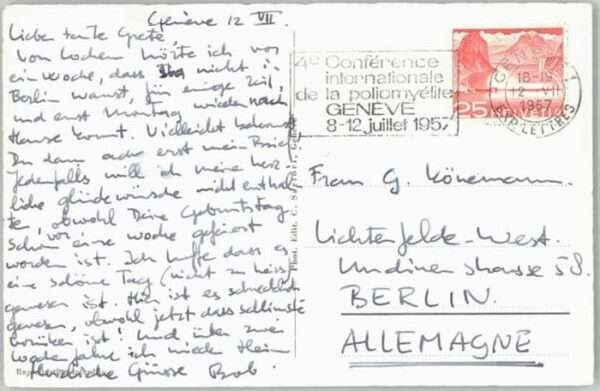 Genève 12 VII.
Liebe tante Grete,
Von Lochen hörte ich vor
ein Woche, dass Ihr nicht in
Berlin warst, für einige Zeit,
und erst Montag wieder nach
Hause kommt. Vielleicht bekommst
Du dann ache erst mein Brief.
Jedenfalls will ich meine herz-
liche glückwünsche nicht enthal-
te, obwohl Deine Geburtstag
schon vor eine woche gefeiert
worden ist. Ich hoffe dass es
eine schöne Tag (nicht zu heiss)
gewesen ist. Hier ist es schrecklich
gewesen, obwohl jetzt dass schlimmste
vorüber ist! Und über zwei
woche fahre ich wieder Heim
Herzliche Grüsse Bob.
4e Conférence
internationale
de la poliomyélite
GENÈVE
8-12 juillet 1957
18-19
12 VII
1957
LETTRES
25
HELVETIA
Frau G. Könemann.
Lichterfelde-West.
Undinenstrasse 58.
BERLIN.
ALLEMAGNE